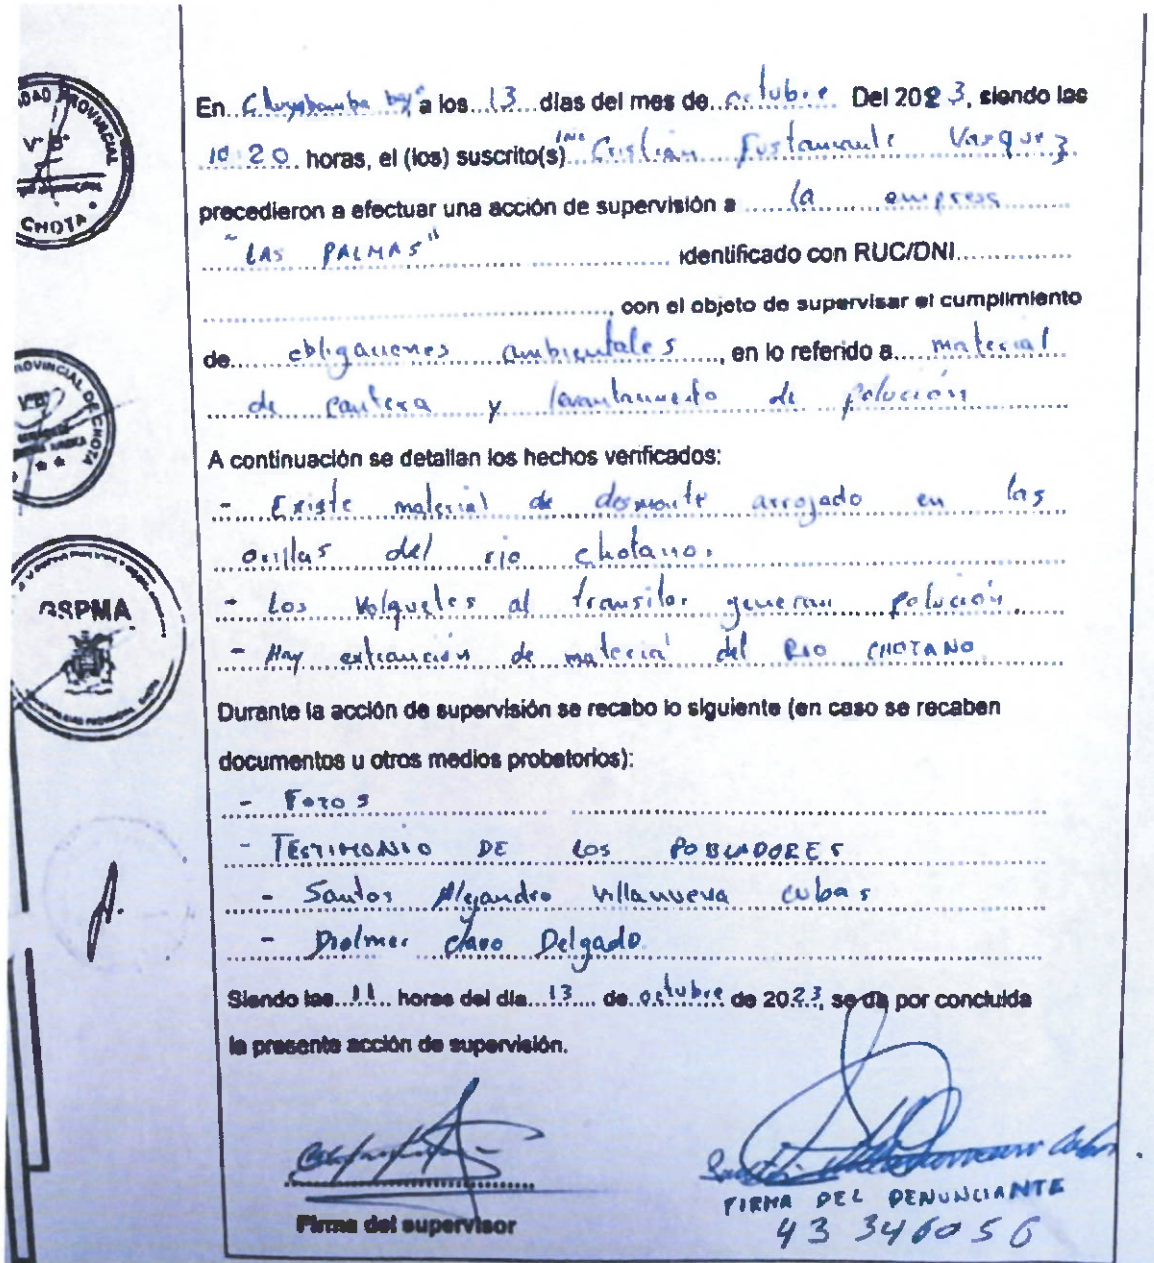 En Chuyabamba bajo a los 13 días del mes de octubre Del 2023, siendo las
10:20 horas, el (los) suscrito(s) Ing Cristian Fustamante Vasquez
precedieron a efectuar una acción de supervisión a la empresa
"LAS PALMAS" identificado con RUC/DNI
, con el objeto de supervisar el cumplimiento
de obligaciones ambientales, en lo referido a material
de cantera y levantamiento de polución
A continuación se detallan los hechos verificados:
- Existe material de desmonte arrojado en las
orillas del rio chotano.
- Los volquetes al transitar generan polución.
- Hay extracción de material del RIO CHOTANO
Durante la acción de supervisión se recabo lo siguiente (en caso se recaben
documentos u otros medios probatorios):
- FOTOS
- TESTIMONIO DE LOS POBLADORES
- Santos Alejandro Villanueva Cubas
- Diolmer Clavo Delgado.
Siendo las 11 horas del día 13 de octubre de 2023, se da por concluida
la presente acción de supervisión.
Firma del supervisor
FIRMA DEL DENUNCIANTE
43346056
V°B°
CHOTA
PROVINCIAL DE CHOTA
V°B°
GSPMA